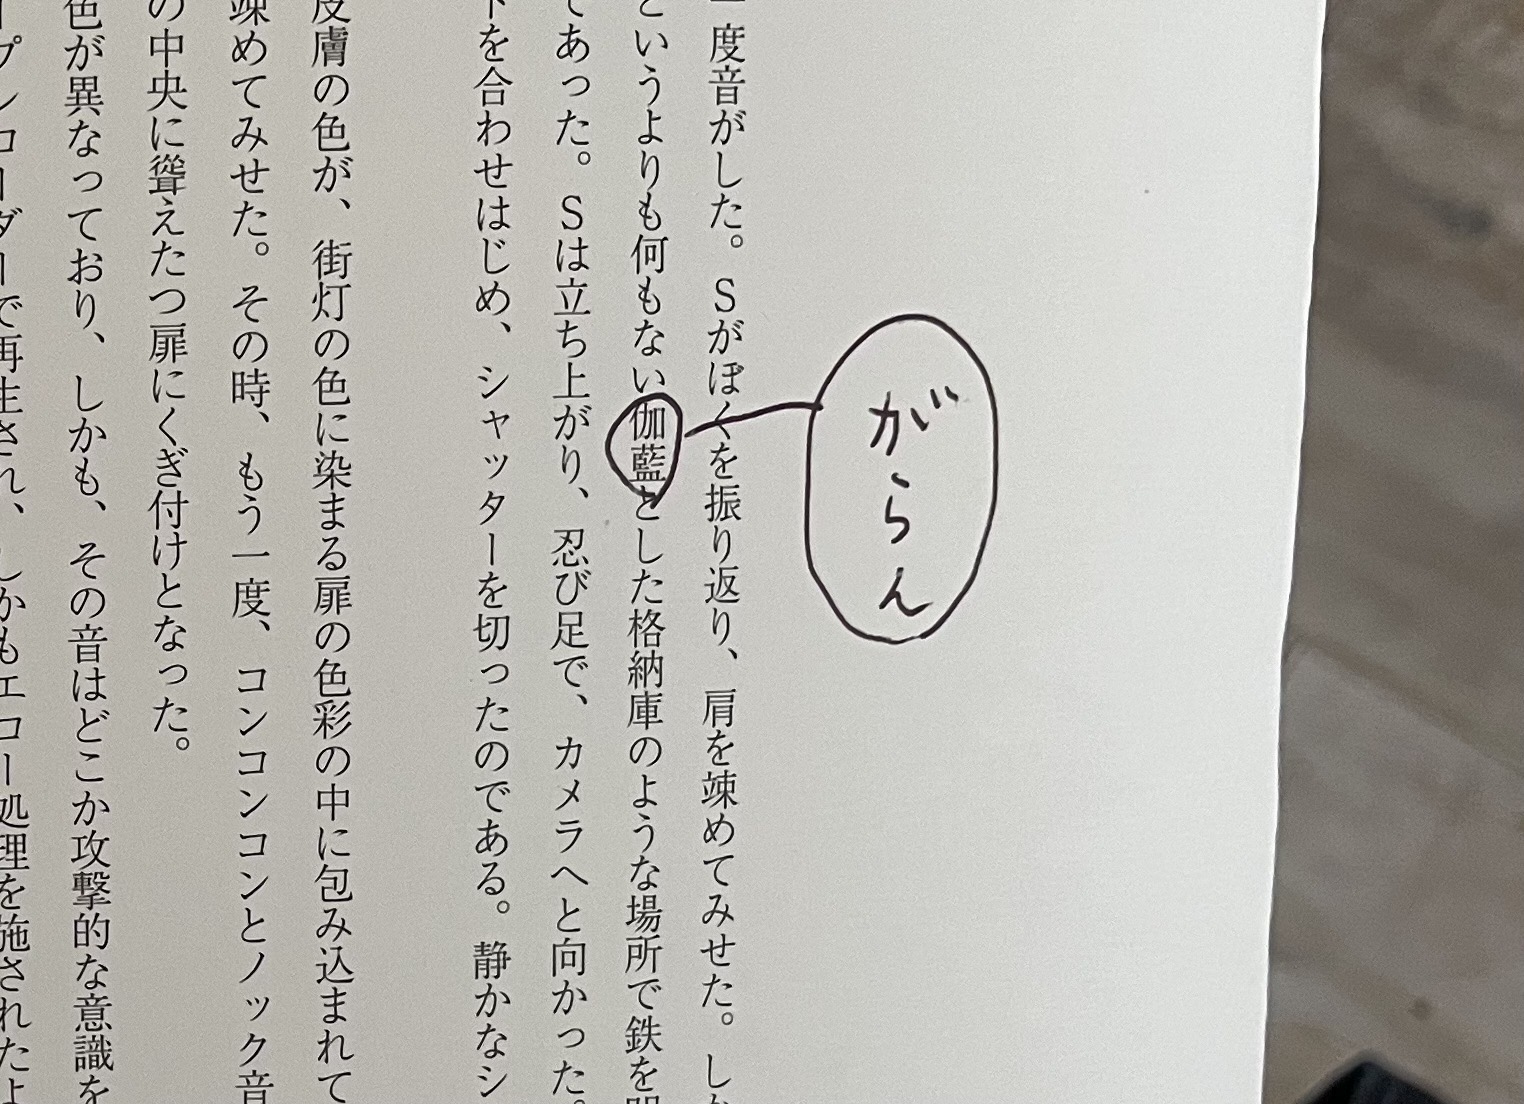 がらん
一度音がした。Sがぼくを振り返り、肩を竦めてみせた。しか
というよりも何もない伽藍とした格納庫のような場所で鉄を
であった。Sは立ち上がり、忍び足で、カメラへと向かった。
を合わせはじめ、シャッターを切ったのである。静かなシ
皮膚の色が、街灯の色に染まる扉の色彩の中に包み込まれて
竦めてみせた。その時、もう一度、コンコンコンコンとノック音
の中央に聳えたつ扉にくぎ付けとなった。
色が異なっており、しかも、その音はどこか攻撃的な意識を
ープンコーダーで再生され、しかもエコー処理を施されたよ